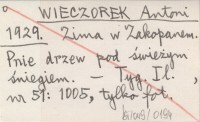 WIECZOREK Antoni
1929. Zima w Zakopanem.
Pnie drzew pod świeżym
śniegiem. – Tyg. Il.,
nr 51: 1005, tylko fot.